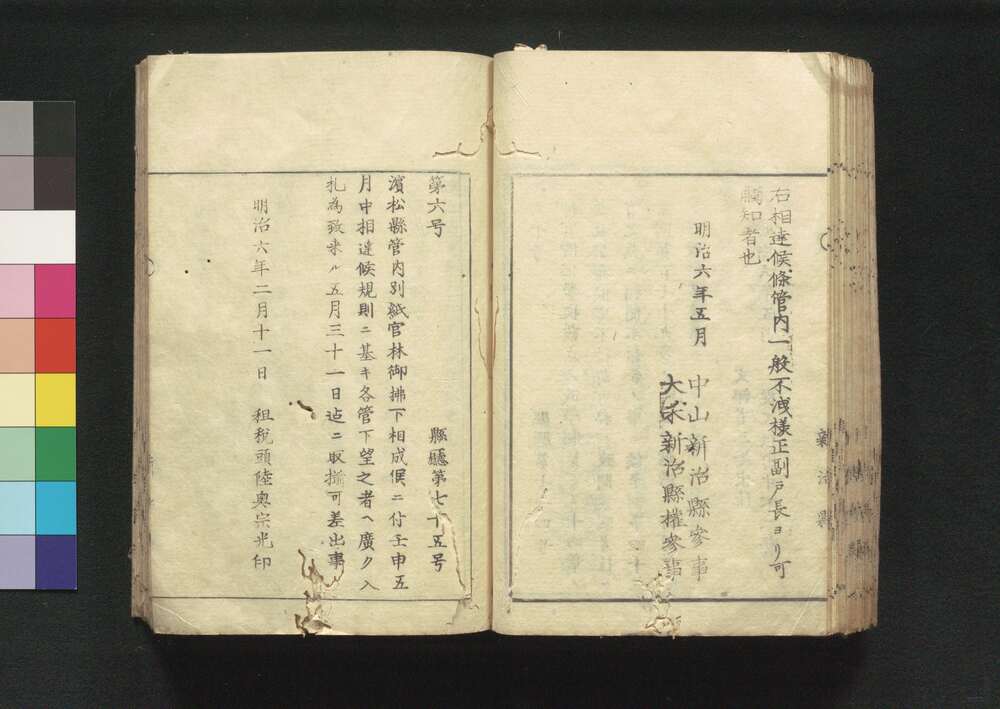 右相達候條管内一般不洩様正副戸長ヨリ可
觸知者也
明治六年五月
中山新治縣參事
大木新治縣権參事
新治縣
第六号
縣廳第七十五号
濱松縣管内別紙官林御拂下相成候ニ付壬申五
月中相達候規則ニ基キ各管下望之者ヘ廣ク入
札為致来ル五月三十一日迠ニ取揃可差出事
明治六年二月十一日
租税頭陸奥宗光印